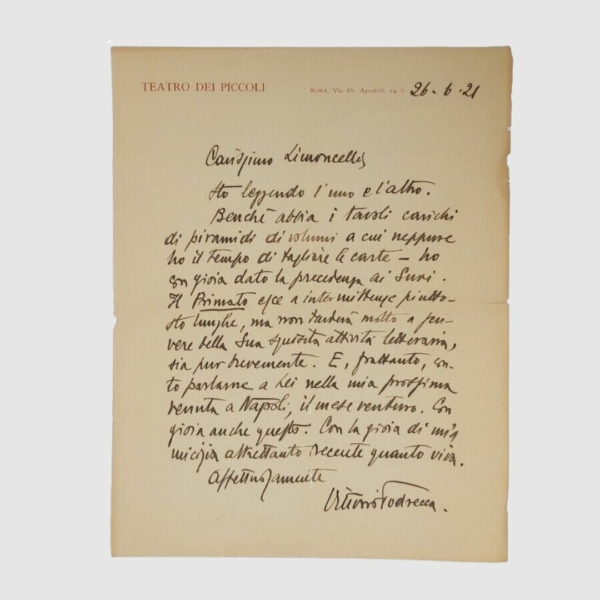 TEATRO DEI PICCOLI
Roma, Via SS. Apostoli, 19
26-6-21
Carissimo Limoncelli,
Sto leggendo l'uno e l'altro.
Benchè abbia i tavoli carichi
di piramidi di volumi a cui neppure
ho il tempo di tagliare le carte – ho
con gioia dato la precedenza ai Suoi.
Il Primato esce a intermittenze piutto-
sto lunghe, ma non tarderà molto a scri-
vere della Sua squisita attività letteraria,
sia pur brevemente. E, frattanto, con-
to parlarne a Lei nella mia prossima
venuta a Napoli, il mese venturo. Con
gioia anche questo. Con la gioia di un'a
micizia altrettanto recente quanto viva.
Affettuosamente
Vittorio Podrecca.